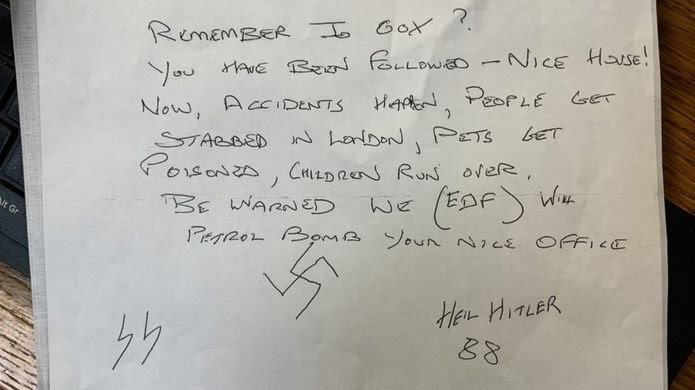 REMEMBER JO COX?
YOU HAVE BEEN FOLLOWED - NICE HOUSE!
NOW, ACCIDENTS HAPPEN, PEOPLE GET
STABBED IN LONDON, PETS GET
POISONED, CHILDREN RUN OVER.
BE WARNED WE (EDF) WILL
PETROL BOMB YOUR NICE OFFICE
HEIL HITLER
88
Alt Gr